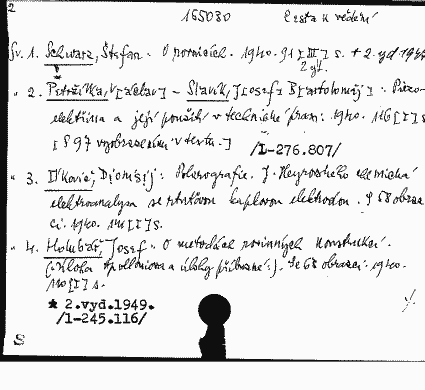 2
165030 Cesta k vědění
Sv. 1. Schwarz, Štefan. O rovnicích. 1940. 91 [III] s. + 2. yd 1947
2 yt.
*
" 2. Petržílka, V[áclav] - Slavík, J[osef] B[artoloměj]: Piezo-
elektřina a její použití v technické praxi. 1940. 116 [I] s.
[S 97 vyobrazeními v textu.] /1-276.807/
" 3. Ilkovič, D[ionýs]: Polarografie. J. Heyrovského chemická
elektroanalysa se rtuťovou kapkovou elektrodou. S 68 obraz-
ci. 1940. s.
" 4. Holubář, Josef. O metodách rovinných konstrukcí.
(: Úloha Apolloniova a úlohy příbuzné :). Se 68 obrazci. 1940.
110 [I] s.
* 2.vyd.1949.
/1-245.116/
S